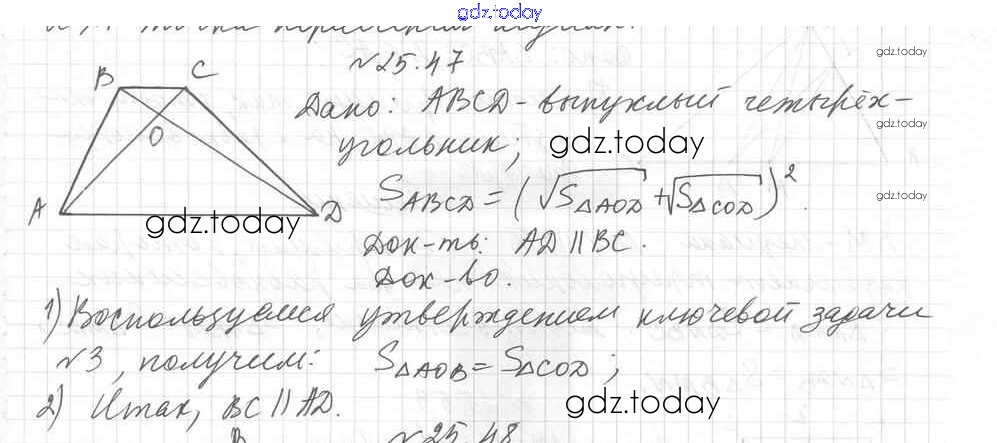 gdz.today
точка пересечения
gdz.today
№25.47
B C
Дано: ABCD - выпуклый четырёх-
gdz.today
O
угольник;
gdz.today
S ABCD = (√S△AOD + √S△COD)².
gdz.today
A D
gdz.today
Док-ть: AD || BC.
Док-во.
1) Воспользуемся утверждением ключевой задачи
№3, получим: S△AOB = S△COD;
2) Итак, BC || AD.
gdz.today
B №25.48